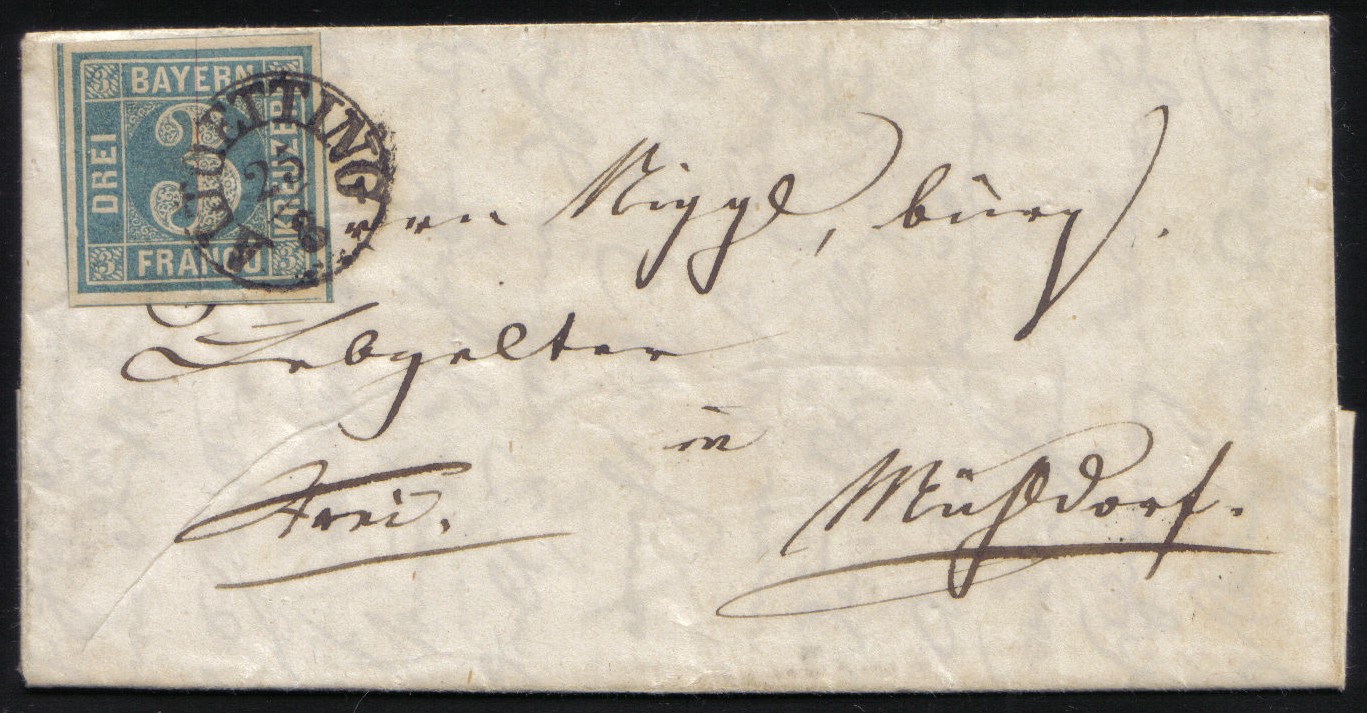 BAYERN
DREI
KREUZER
FRANCO
3 3 3 3 3
A.OETTING
25
8
Herrn Niggl, bürg).
Lebzelter
in
Frei.
Mühldorf.